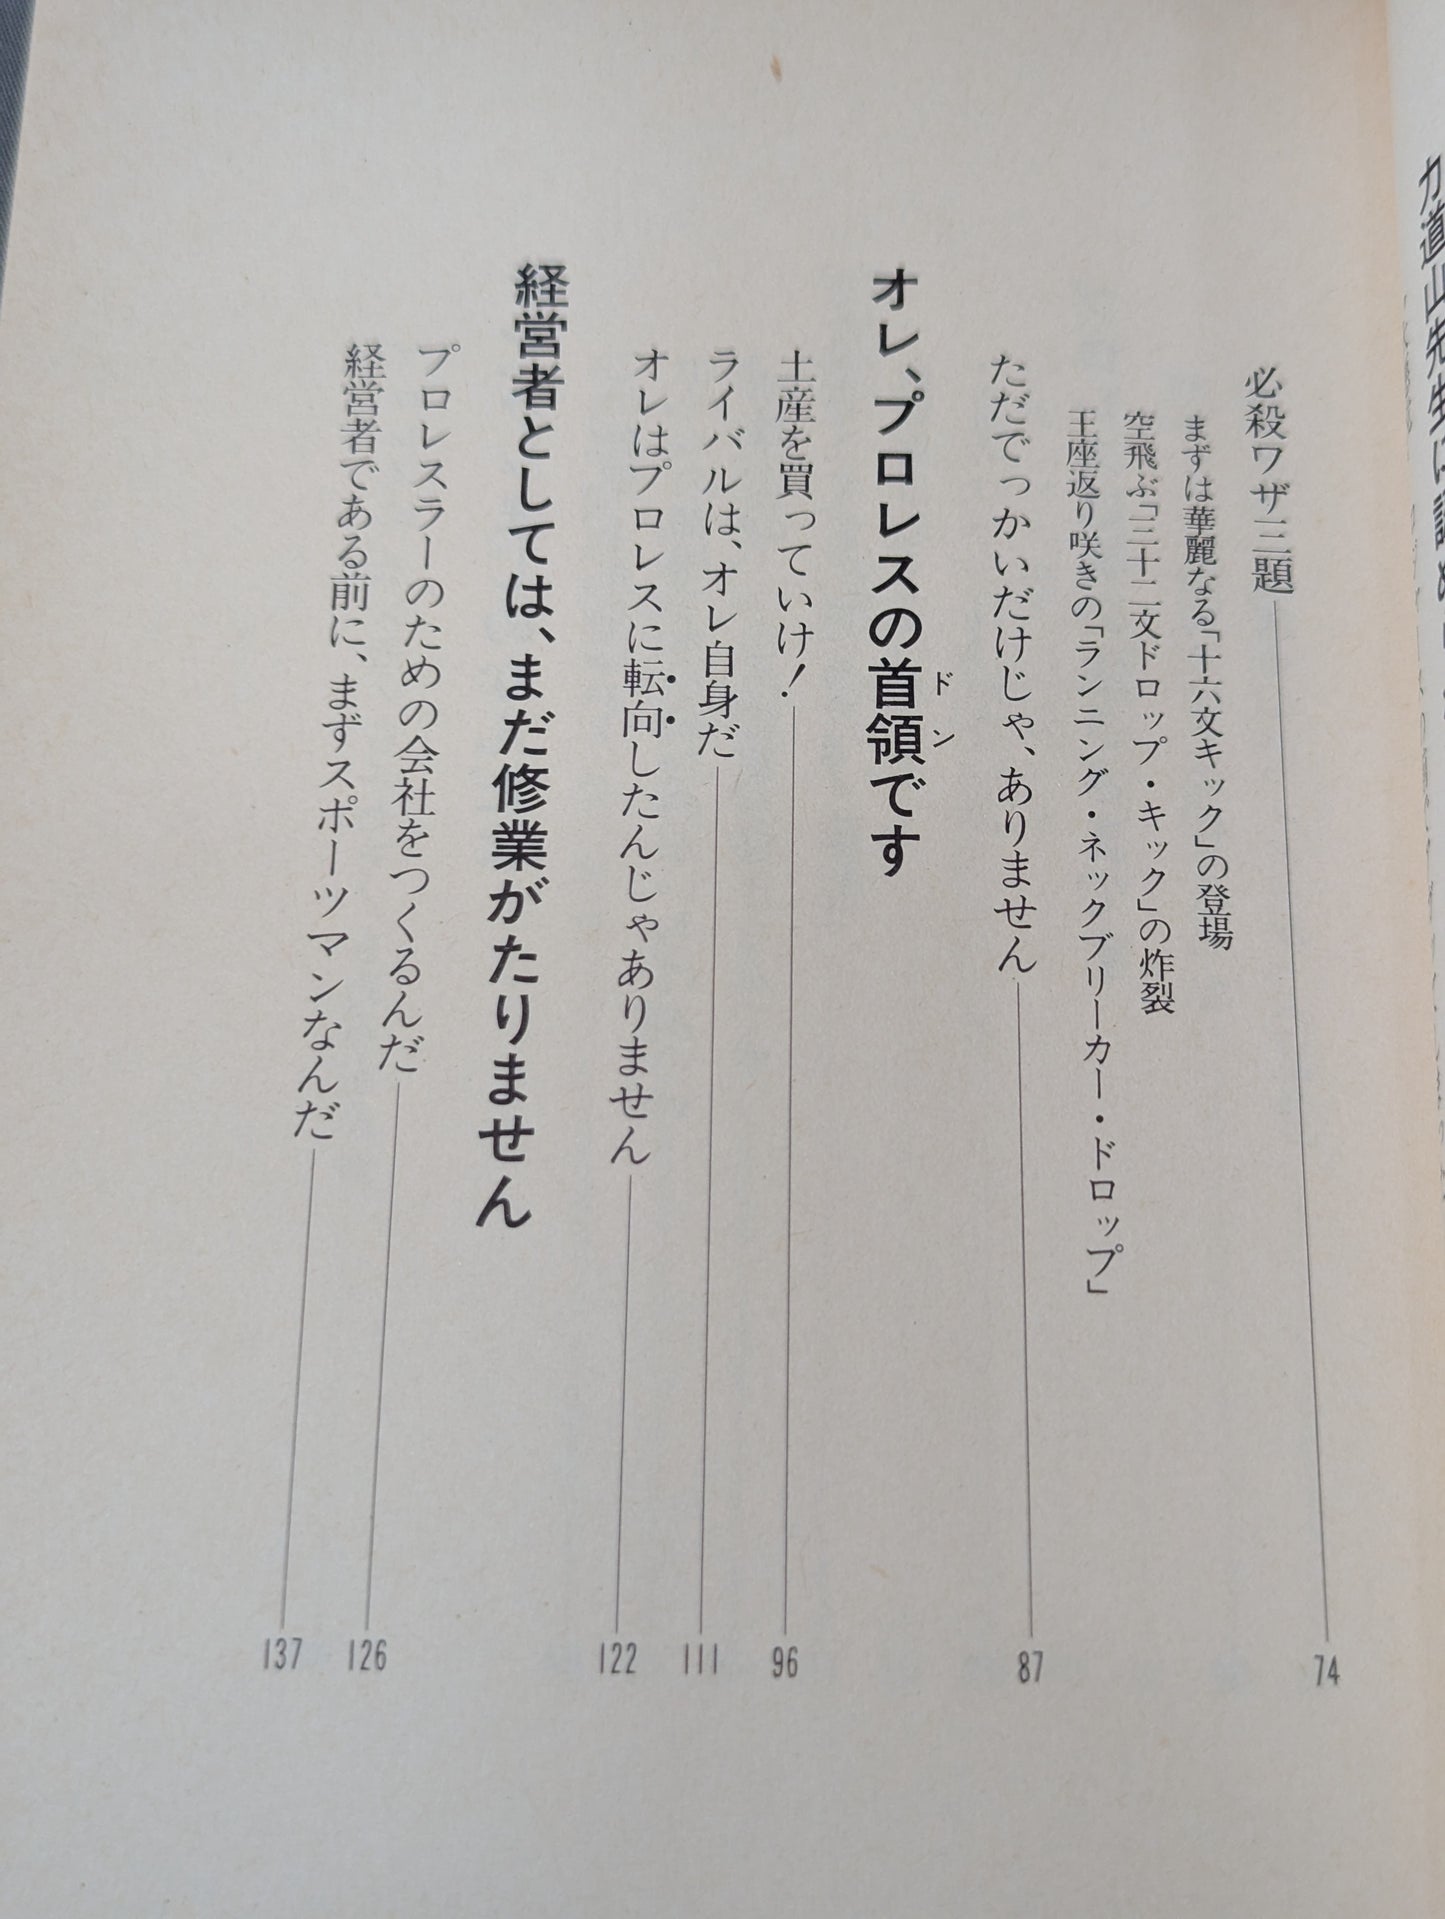 力道山先生に
必殺ワザ三題 74
まずは華麗なる「十六文キック」の登場
空飛ぶ「三十二文ドロップ・キック」の炸裂
王座返り咲きの「ランニング・ネックブリーカー・ドロップ」
ただでっかいだけじゃ、ありません 87
オレ、プロレスの首領です
ドン
土産を買っていけ! 96
ライバルは、オレ自身だ 111
オレはプロレスに転向したんじゃありません 122
経営者としては、まだ修業がたりません
プロレスラーのための会社をつくるんだ 126
経営者である前に、まずスポーツマンなんだ 137